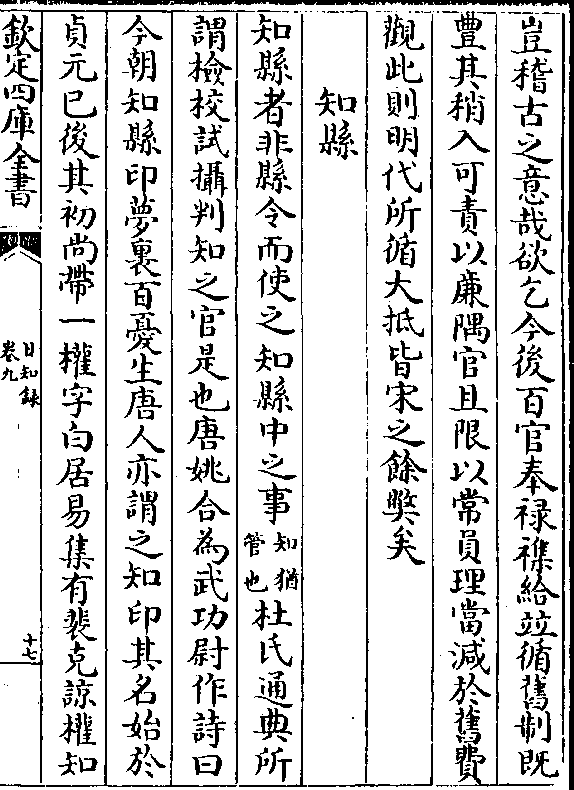 豈稽古之意哉欲乞今後百官奉禄襍給竝循舊制既
豐其稍入可責以廉隅官且限以常員理當減於舊費
觀此則明代所循大抵皆宋之餘獘矣
知縣
知縣者非縣令而使之知縣中之事知猶管也杜氏通典所
謂檢校試攝判知之官是也唐姚合為武功尉作詩曰
今朝知縣印夢裏百憂生唐人亦謂之知印其名始於
貞元已後其初尚帶一權字白居易集有裴克諒權知
欽定四庫全書
日知録
卷九
十七